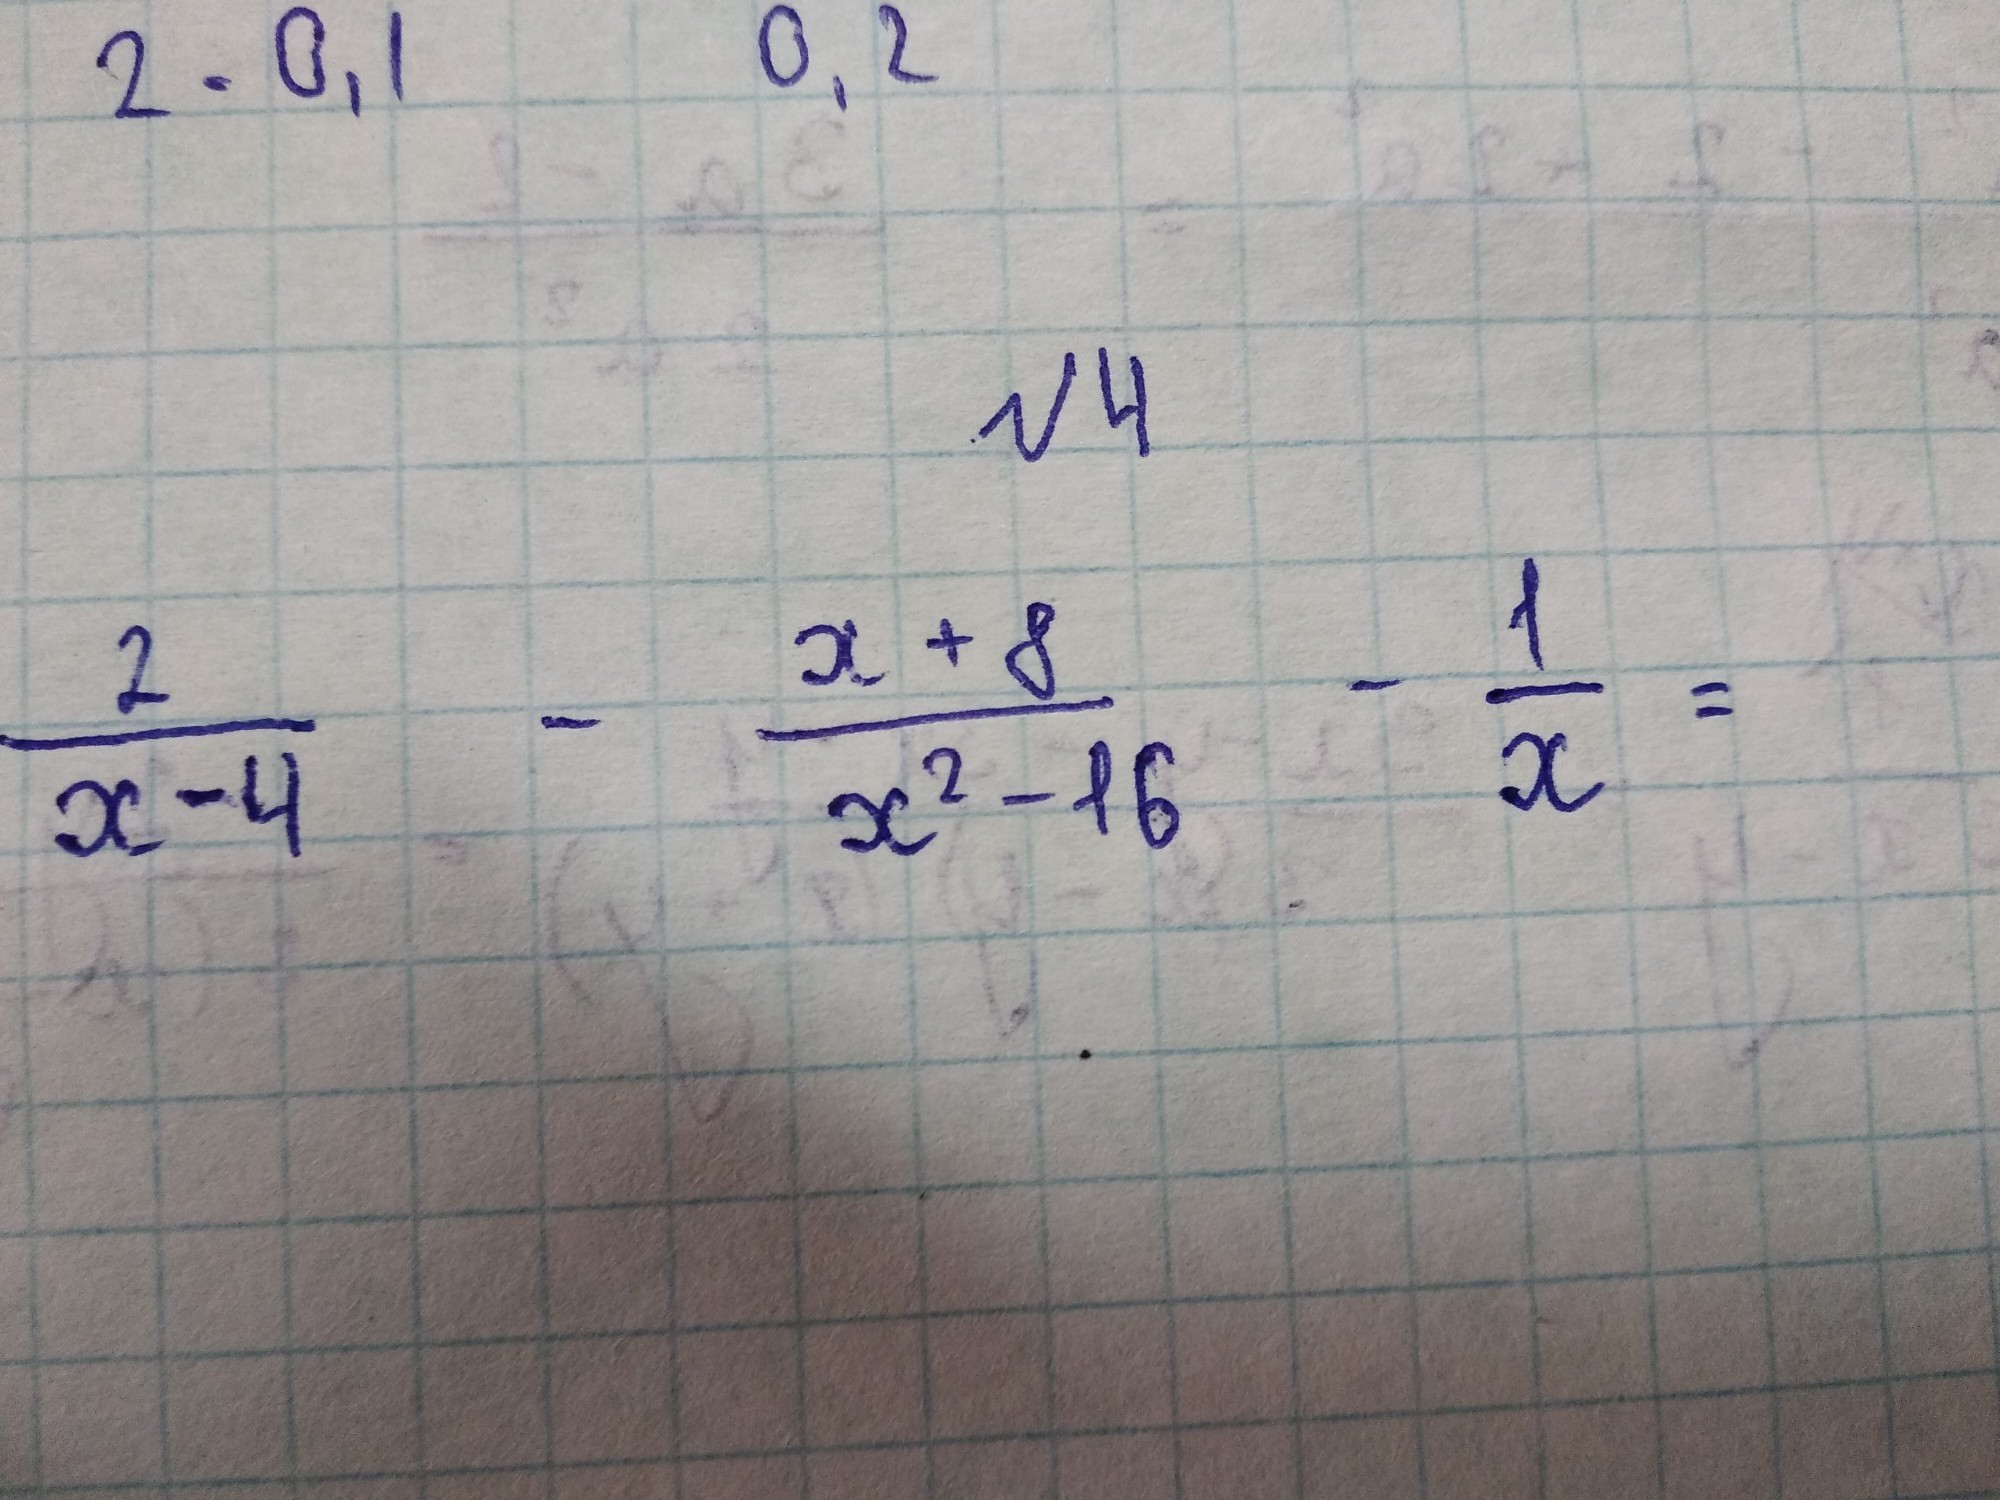 2 · 0,1 0,2
√4
2/(x-4) - (x+8)/(x²-16) - 1/x =